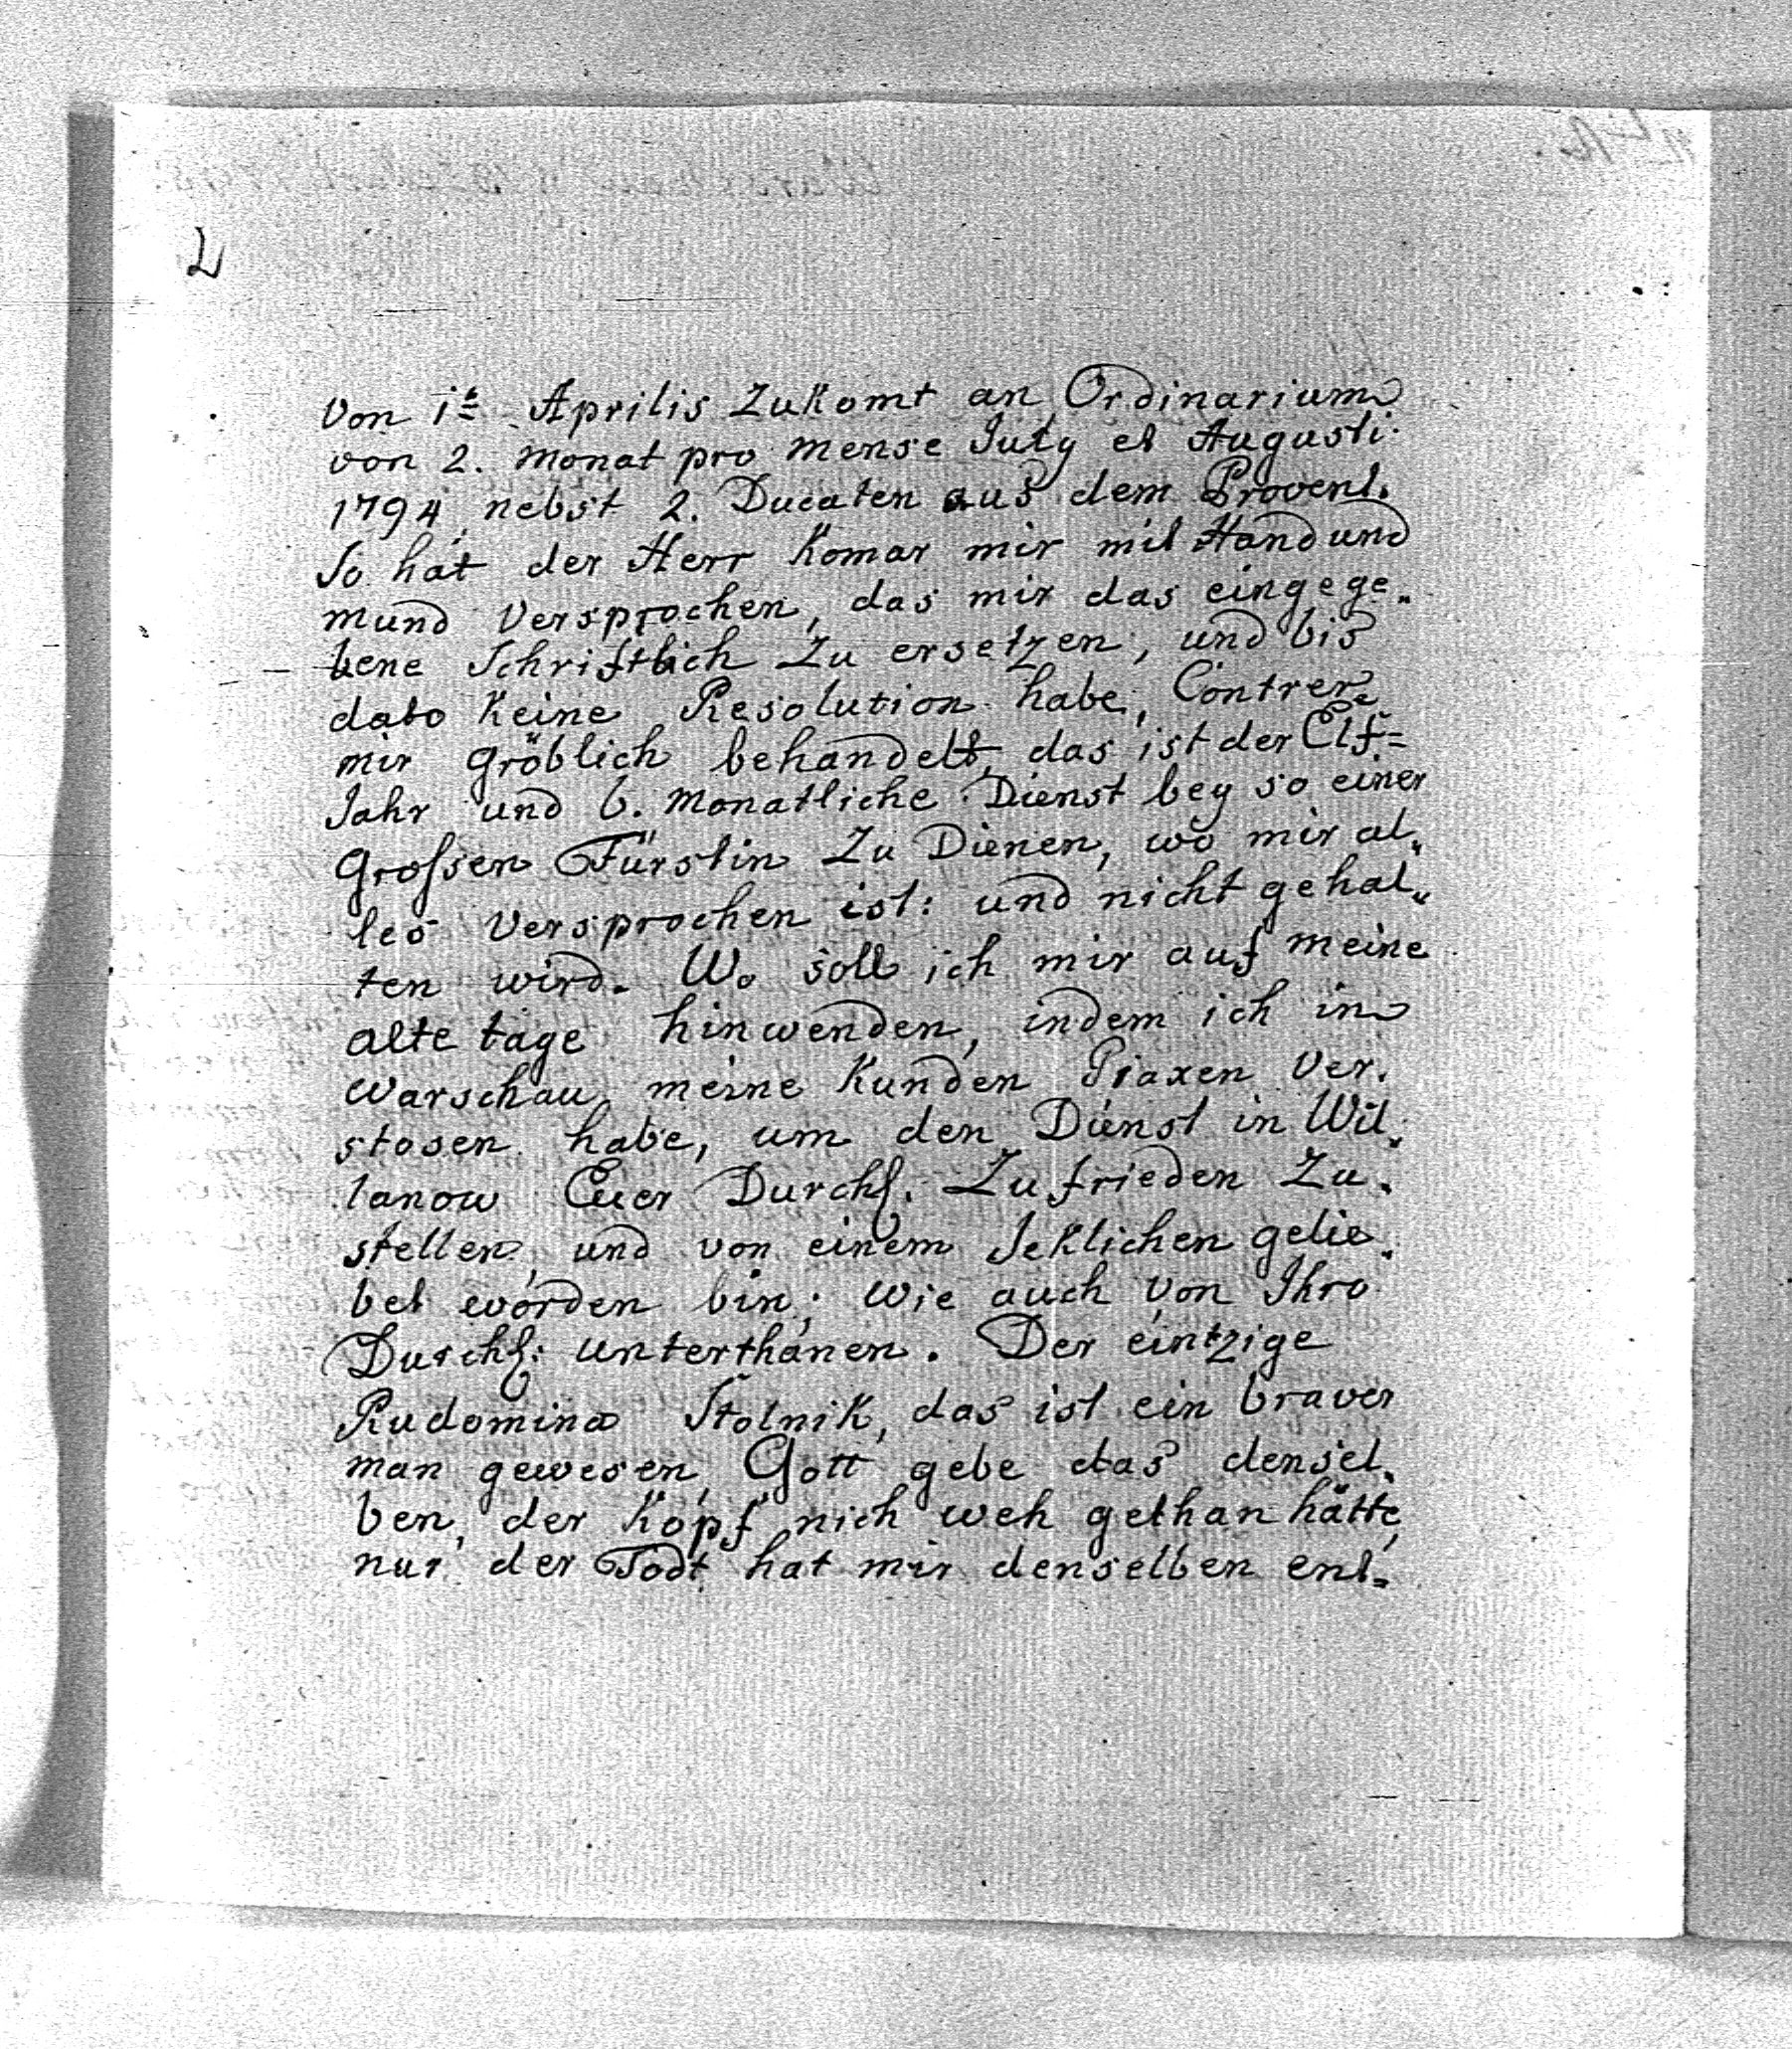 L
Von 1t Aprilis Zukomt an Ordinarium
von 2. Monat pro Mense July et Augusti
1794, nebst 2. Ducaten aus dem Provent.
So hat der Herr Komar mir mit Hand und
mund Versprochen, das mir das eingege„
bene Schriftlich Zu ersetzen, und bis
dato Keine Resolution habe, Contrere
mir gröblich behandelt, das ist der Elf=
Jahr und 6. Monatliche Dienst bey so einer
Grossen Fürstin Zu Dienen, wo mir al„
les Versprochen ist: und nicht gehal„
ten wird. Wo soll ich mir auf meine
alte tage hinwenden, indem ich in
Warschau meine Kunden Praxen Ver.
stosen habe, um den Dienst in Wil„
lanow Euer Durchl. Zufrieden Zu.
stellen, und von einem Jeklichen gelie„
bet worden bin; Wie auch von Ihro
Durchl: unterthanen. Der eintzige
Rudomina Stolnik, das ist ein braver
man gewesen, Gott gebe das densel„
ben, der Kopf nich weh gethan hätte,
nur der Todt hat mir denselben ent„